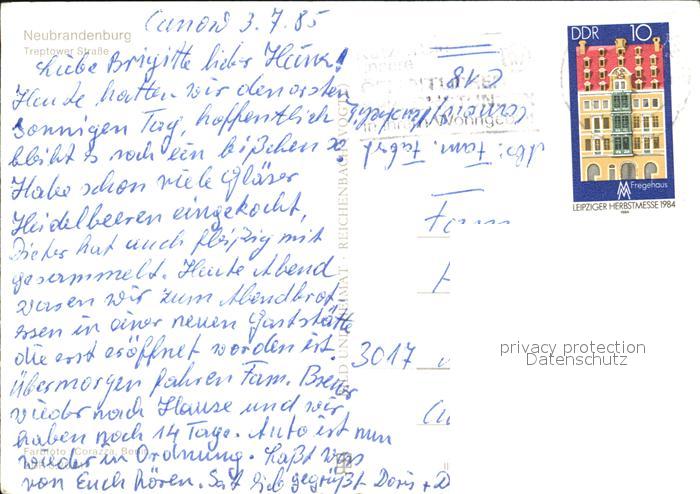 Neubrandenburg
Treptower Straße
Canow 3.7.85
Liebe Brigitte lieber Heinz!
Heute hatten wir den ersten
sonnigen Tag, hoffentlich
bleibt es noch ein bißchen so.
Habe schon viele Gläser
Heidelbeeren eingekocht,
Dieter hat auch fleißig mit
gesammelt. Heute Abend
waren wir zum Abendbrot
essen in einer neuen Gaststätte
die erst eröffnet worden ist.
Übermorgen fahren Fam.
wieder nach Hause und wir
haben noch 14 Tage. Auto ist nun
wieder in Ordnung. Laßt was
von Euch hören. Seid lieb gegrüßt Doris + D
Farbfoto: Corazza, Berlin
BILD UND HEIMAT · REICHENBACH (VOGTL)
Abs: Fam.
Fam
3017
DDR 10
Fregehaus
LEIPZIGER HERBSTMESSE 1984
privacy protection
Datenschutz